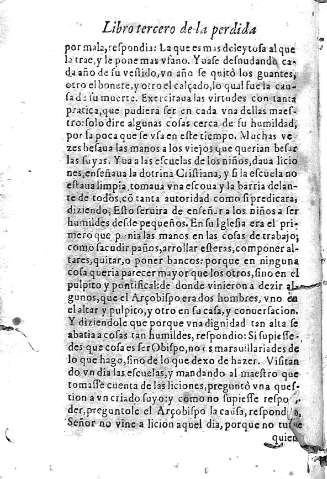 Libro tercero de la perdida
por mala, respondia: La que es mas deleytosa al que
la trae, y le pone mas vfano. Yuase desnudando ca-
da año de su vestido, vn año se quitò los guantes,
otro el bonete, y otro el calçado, lo qual fue la cau-
sa de su muerte. Exercitaua las virtudes con tanta
pratica, que pudiera ser en cada vna dellas maes-
tro: solo dire algunas cosas cerca de su humildad,
por la poca que se vsa en este tiempo. Muchas ve
zes besaua las manos a los viejos que querian besar
las suyas. Yua a las escuelas de los niños, daua licio
nes, enseñaua la dotrina Cristiana, y si la escuela no
estaua limpia, tomaua vna escoua y la barria delan-
te de todos, cõ tanta autoridad como si predicara,
diziendo, Esto seruira de enseñar a los niños a ser
humildes desde pequeños. En su Iglesia era el pri-
mero que ponia las manos en las cosas de trabajo;
como sacudir paños, arrollar esteras, componer al-
tares, quitar, o poner bancos: porque en ninguna
cosa queria parecer mayor que los otros, sino en el
pulpito y pontifical: de donde vinieron a dezir al-
gunos, que el Arçobispo era dos hombres, vno en
el altar y pulpito, y otro en su casa, y conuersacion.
Y diziendole que porque vna dignidad tan alta se
abatia a cosas tan humildes, respondio: Si supiesse-
des que cosa es ser Obispo, no os marauillariades de
lo que hago, sino de lo que dexo de hazer. Visitan
do vn dia las escuelas, y mandando al maestro que
tomasse cuenta de las liciones, preguntò vna ques-
tion a vn criado suyo: y como no supiesse respo
der, preguntole el Arçobispo la causa, respondia,
Señor no vine a licion aquel dia, porque no tuue
quien